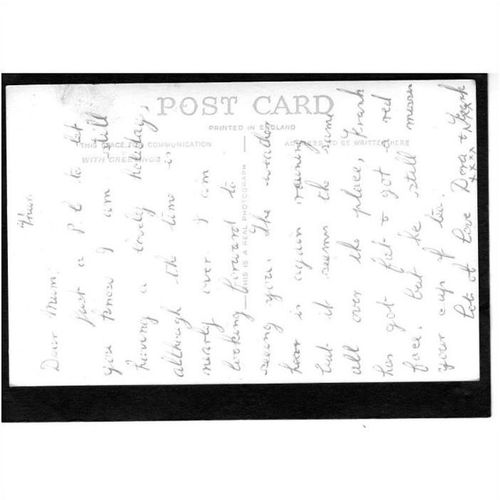 POST CARD
PRINTED IN ENGLAND
THIS SPACE FOR COMMUNICATION
ADDRESS TO BE WRITTEN HERE
WITH GREETINGS
THIS IS A REAL PHOTOGRAPH
Thur.
Dear Mum,
Just a P.C to let
you know I am still
having a lovely holiday,
although the time is
nearly over I am
looking forward to
seeing you. The weather
here is again raining
but it seems the same
all over the place, Frank
has got fat & got a red
face. but he still misses
your cup of tea.
Lots of Love Dora & Frank